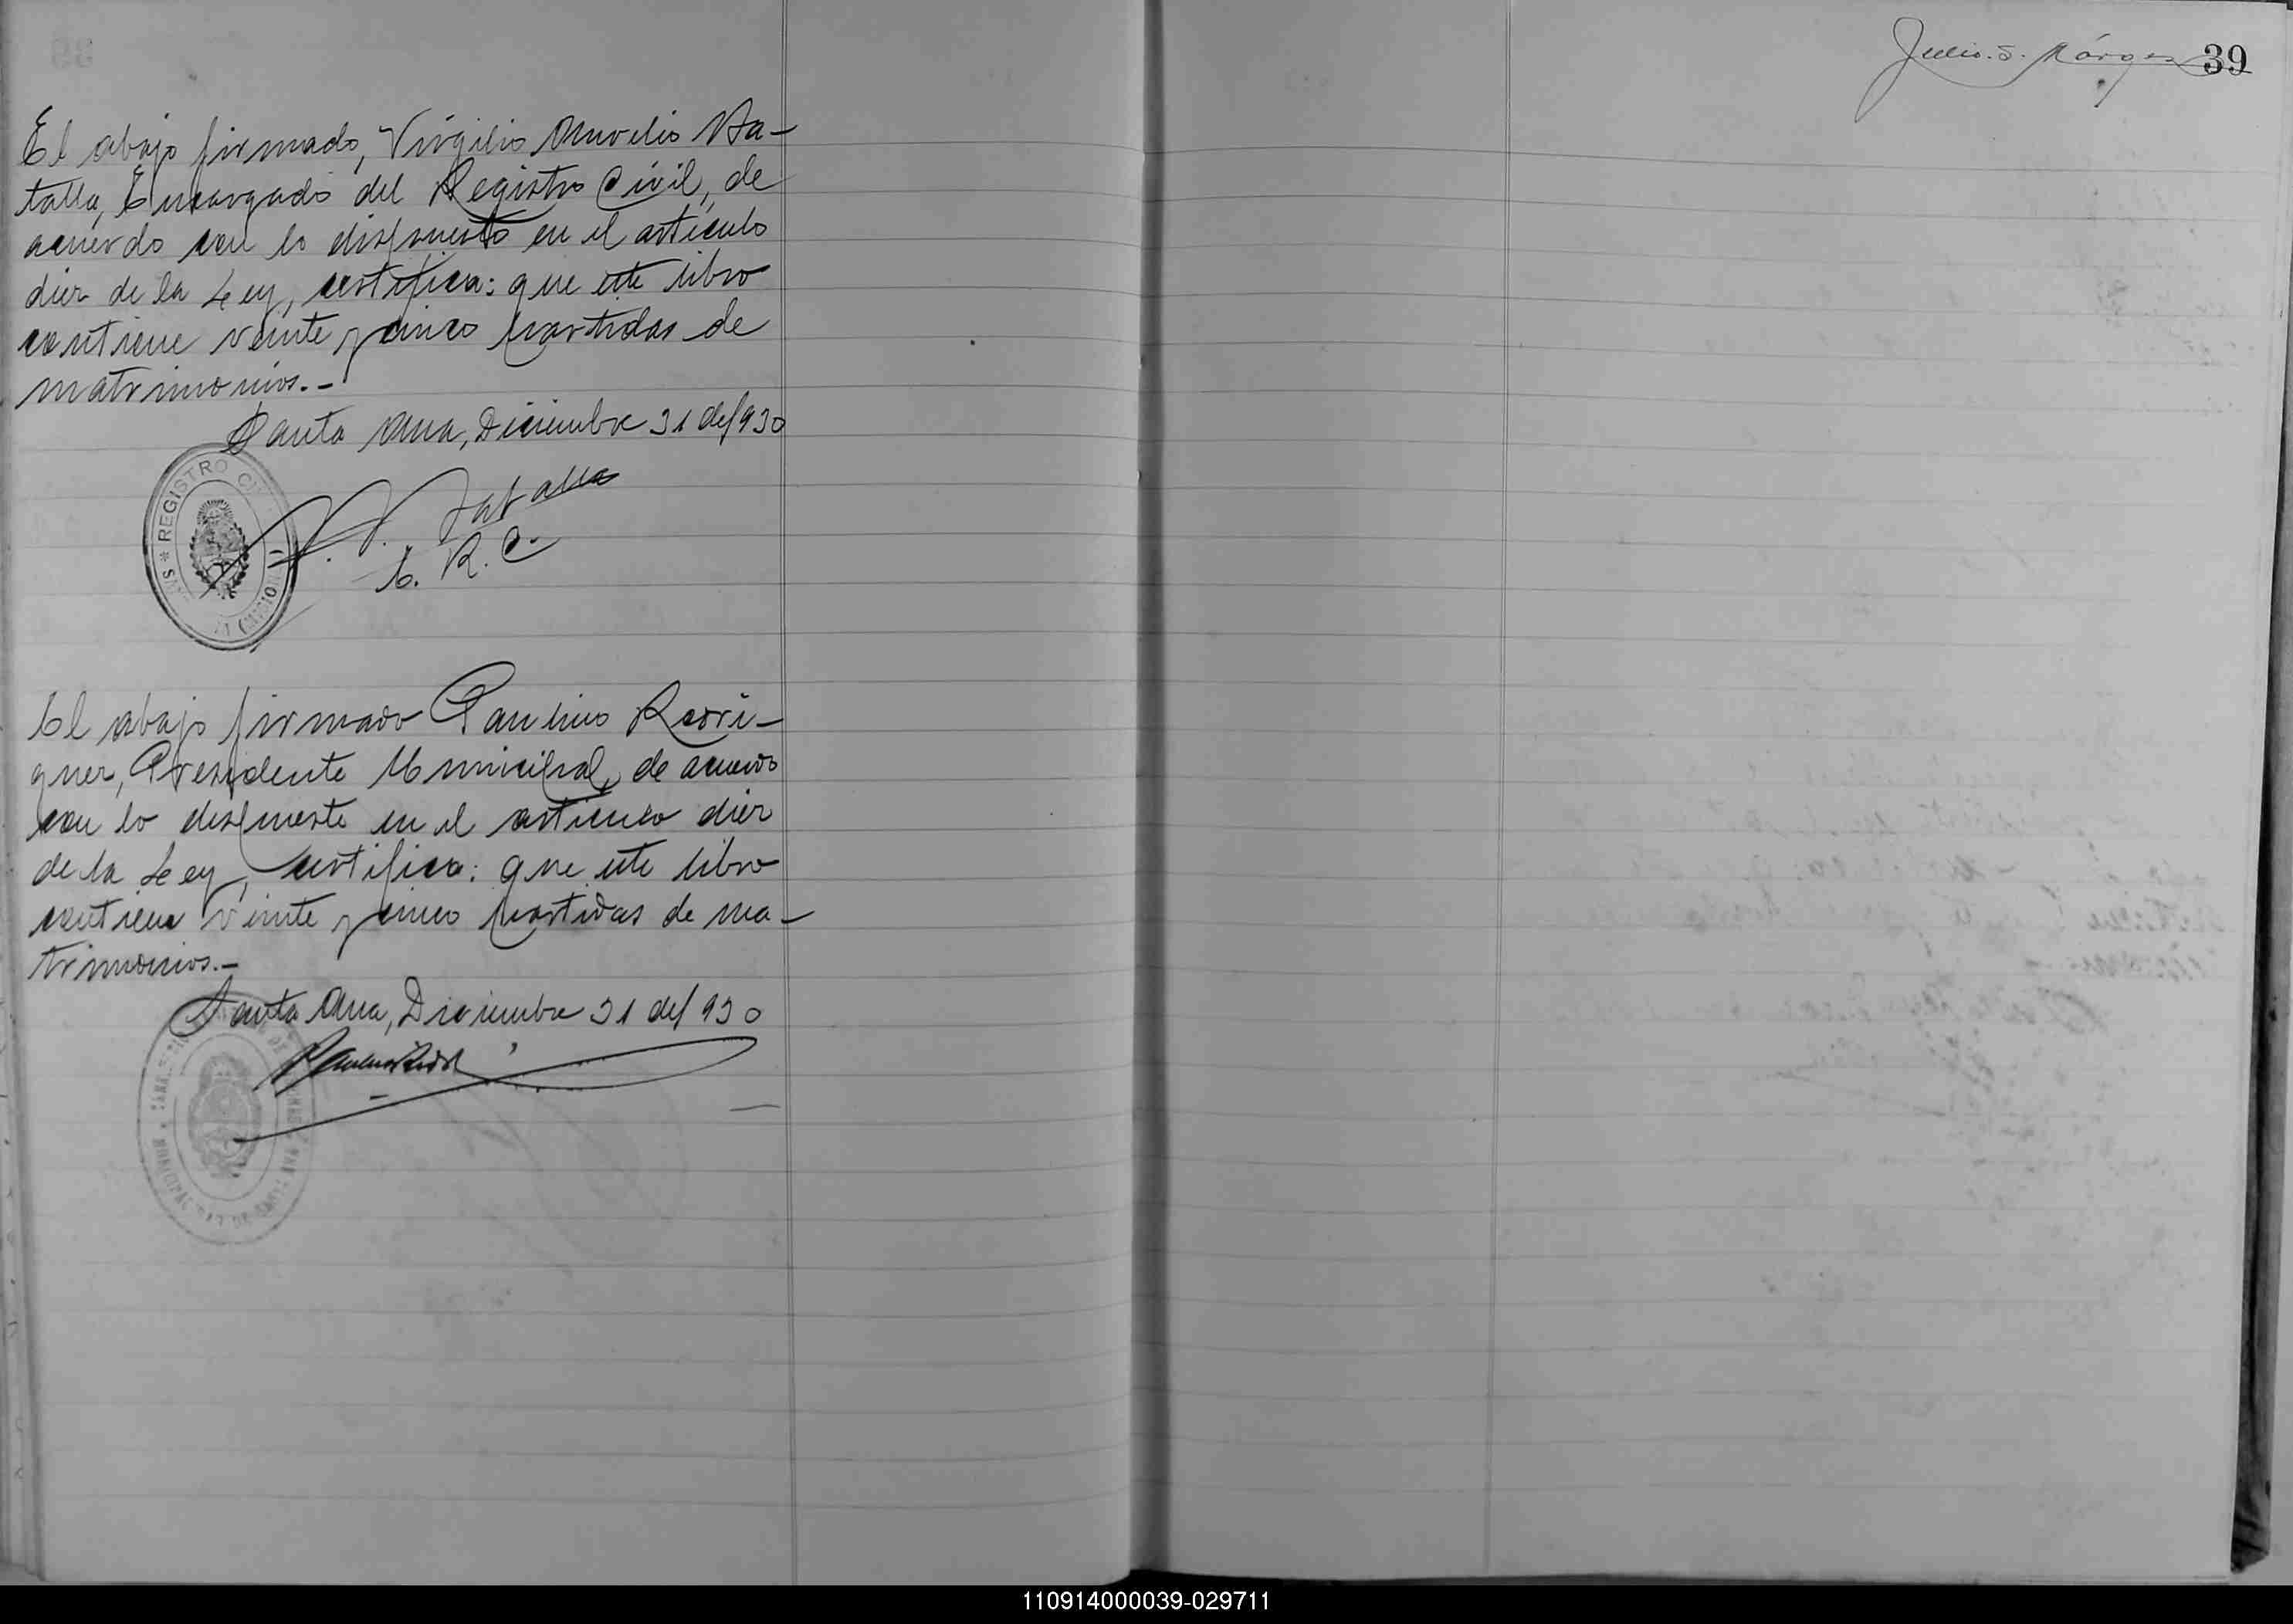 El abajo firmado, Virgilio Amvelio Ba-
talla, Encargado del Registro Civil, de
acuerdo con lo dispuesto en el artículo
diez de la Ley, certifica: que este libro
contiene veinte y cinco partidas de
matrimonios.-
Santa Ana, Diciembre 31 de 1930
REGISTRO CIVIL
V. A. Batalla
E. R. C.
El abajo firmado Paulino Rodri-
guez, Presidente Municipal, de acuerdo
con lo dispuesto en el artículo diez
de la Ley, certifica: que este libro
contiene veinte y cinco partidas de ma-
trimonios.-
Santa Ana, Diciembre 31 de 1930
Julio. S. 39
110914000039-029711